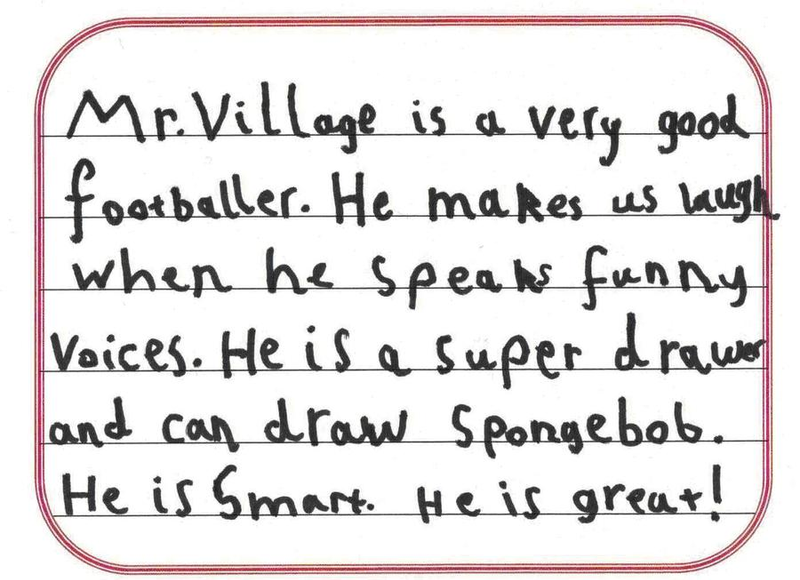 Mr. Village is a very good
footballer. He makes us laugh
when he speaks funny
voices. He is a super drawer
and can draw Spongebob.
He is Smart. He is great!